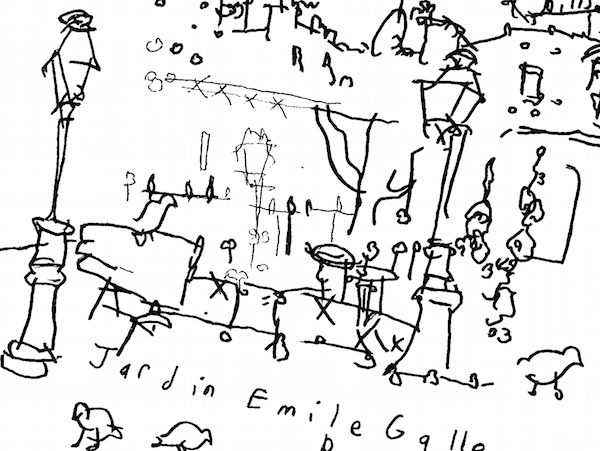 Jardin Emile Galle